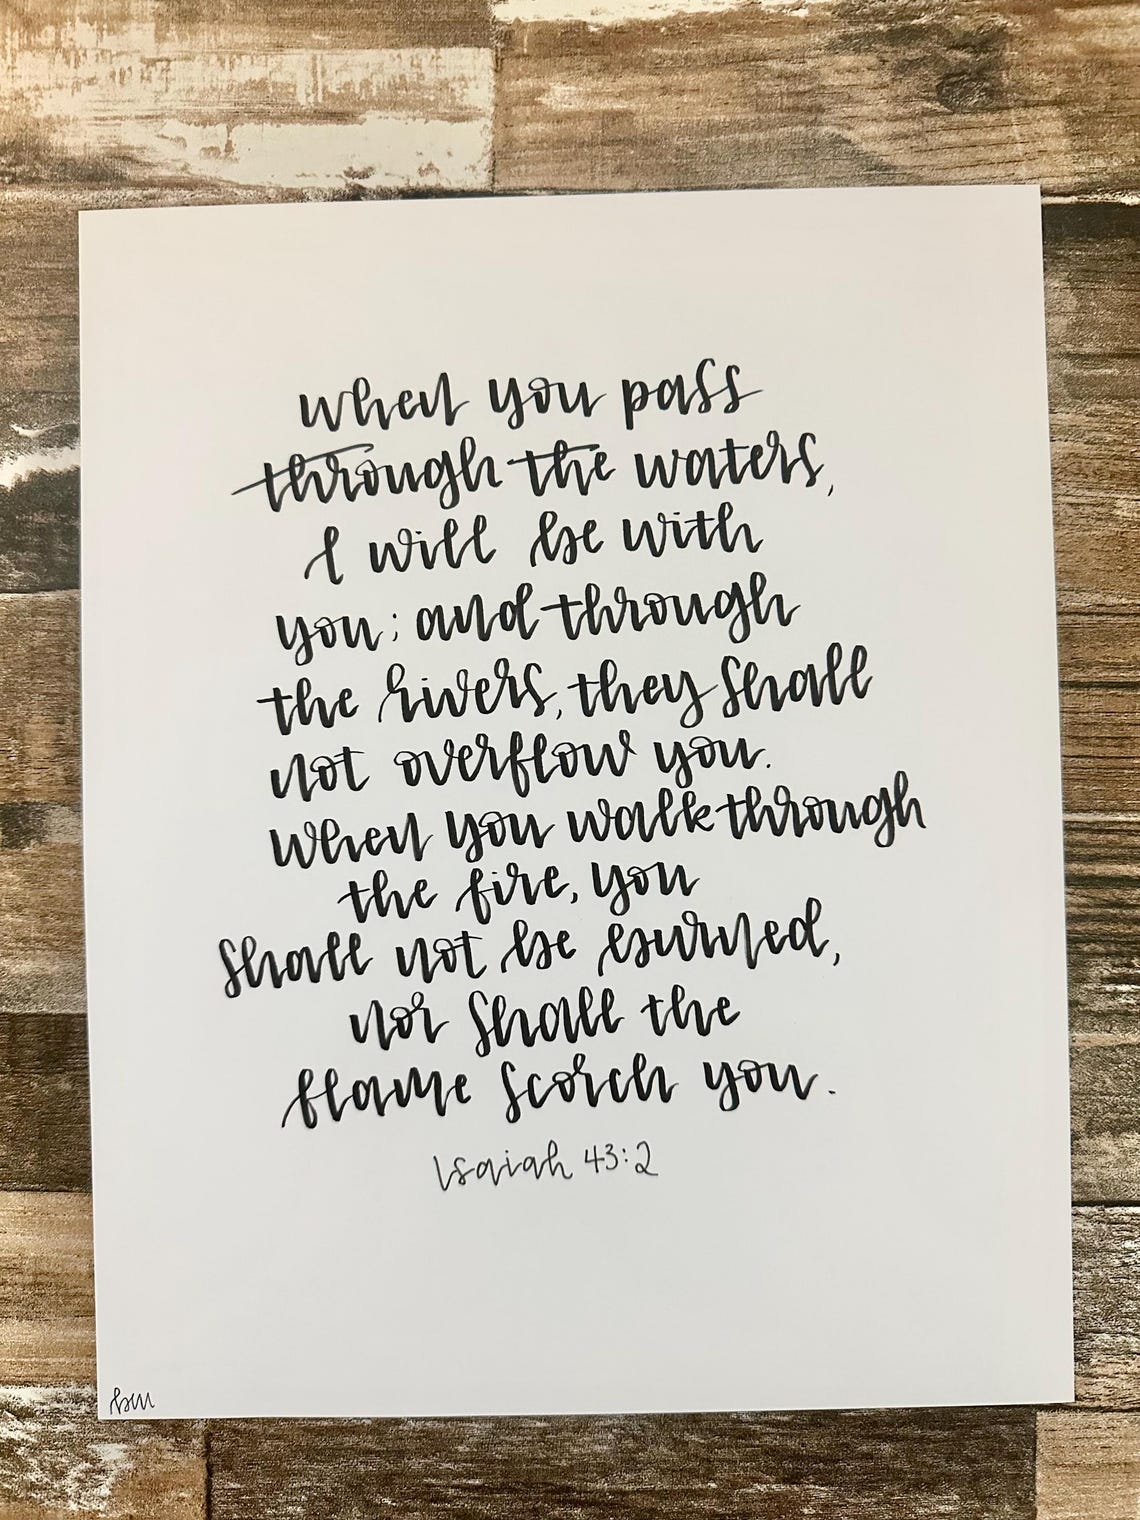 when you pass
through the waters,
I will be with
you; and through
the rivers, they shall
not overflow you.
when you walk through
the fire, you
shall not be burned,
nor shall the
flame scorch you.
Isaiah 43:2